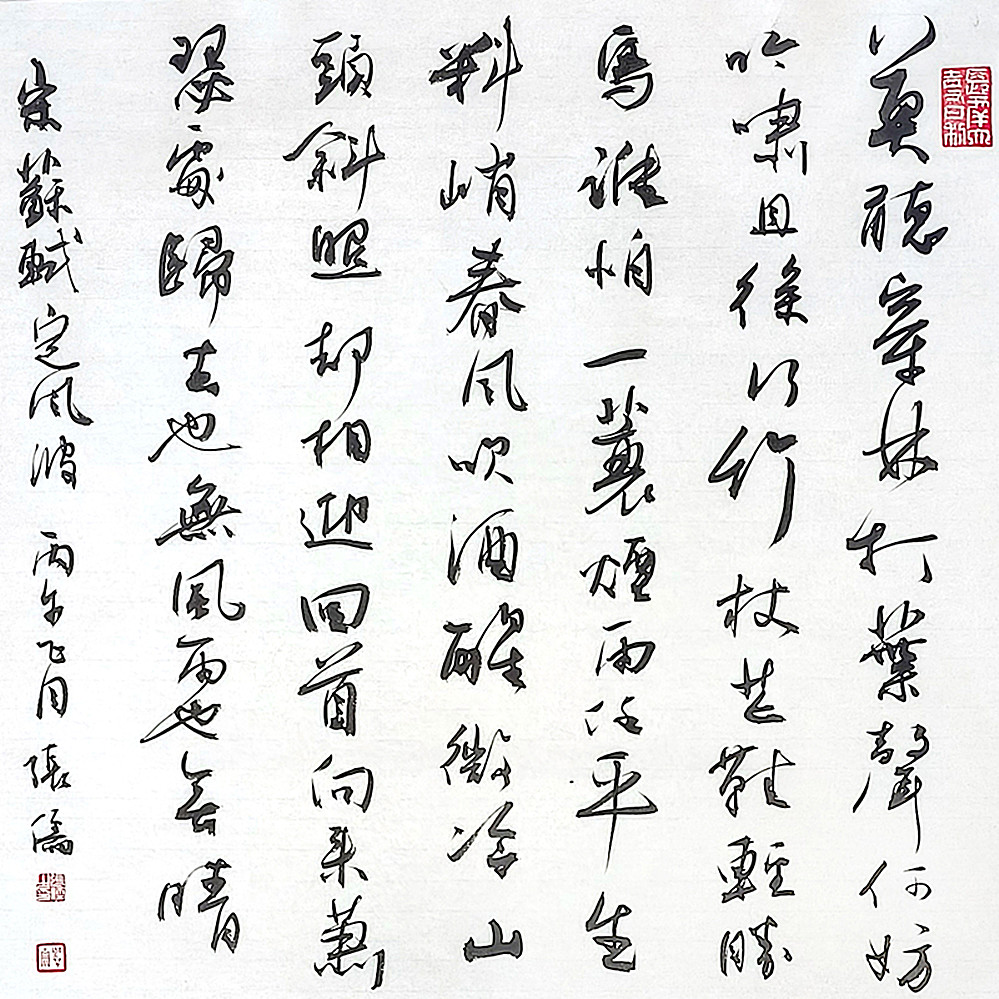 莫聽穿林打葉聲何妨
吟嘯且徐行竹杖芒鞋輕勝
馬誰怕一蓑煙雨任平生
料峭春風吹酒醒微冷山
頭斜照却相迎回首向來蕭
瑟處歸去也無風雨也無晴
宋蘇軾定風波 丙午 月 張